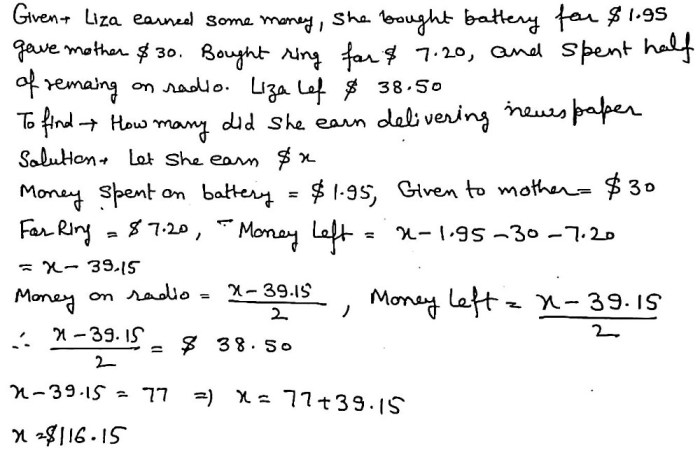 Given → Liza earned some money, She bought battery for $1.95
gave mother $30. Bought ring for $ 7.20, and spent half
of remaing on radio. Liza Lef $ 38.50
To find → How many did she earn delivering newspaper
Solution → Let she earn $x
Money spent on battery = $1.95, Given to mother = $30
For Ring = $7.20, - Money Left = x-1.95-30-7.20
= x-39.15
Money on radio = \frac{x-39.15}{2}, Money left = \frac{x-39.15}{2}
∴ \frac{x-39.15}{2} = $ 38.50
x-39.15 = 77 => x = 77+39.15
x = $116.15